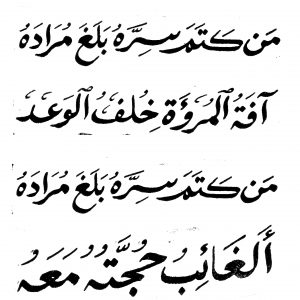 مَن كَتَمَ سِرَّهُ بَلَغَ مُرَادَهُ
آفَةُ الْمُرُوءَةِ خُلفُ الْوَعْدِ
مَن كَتَمَ سِرَّهُ بَلَغَ مُرَادَهُ
أَلغَائِبُ حُجَّتُهُ مَعَهُ